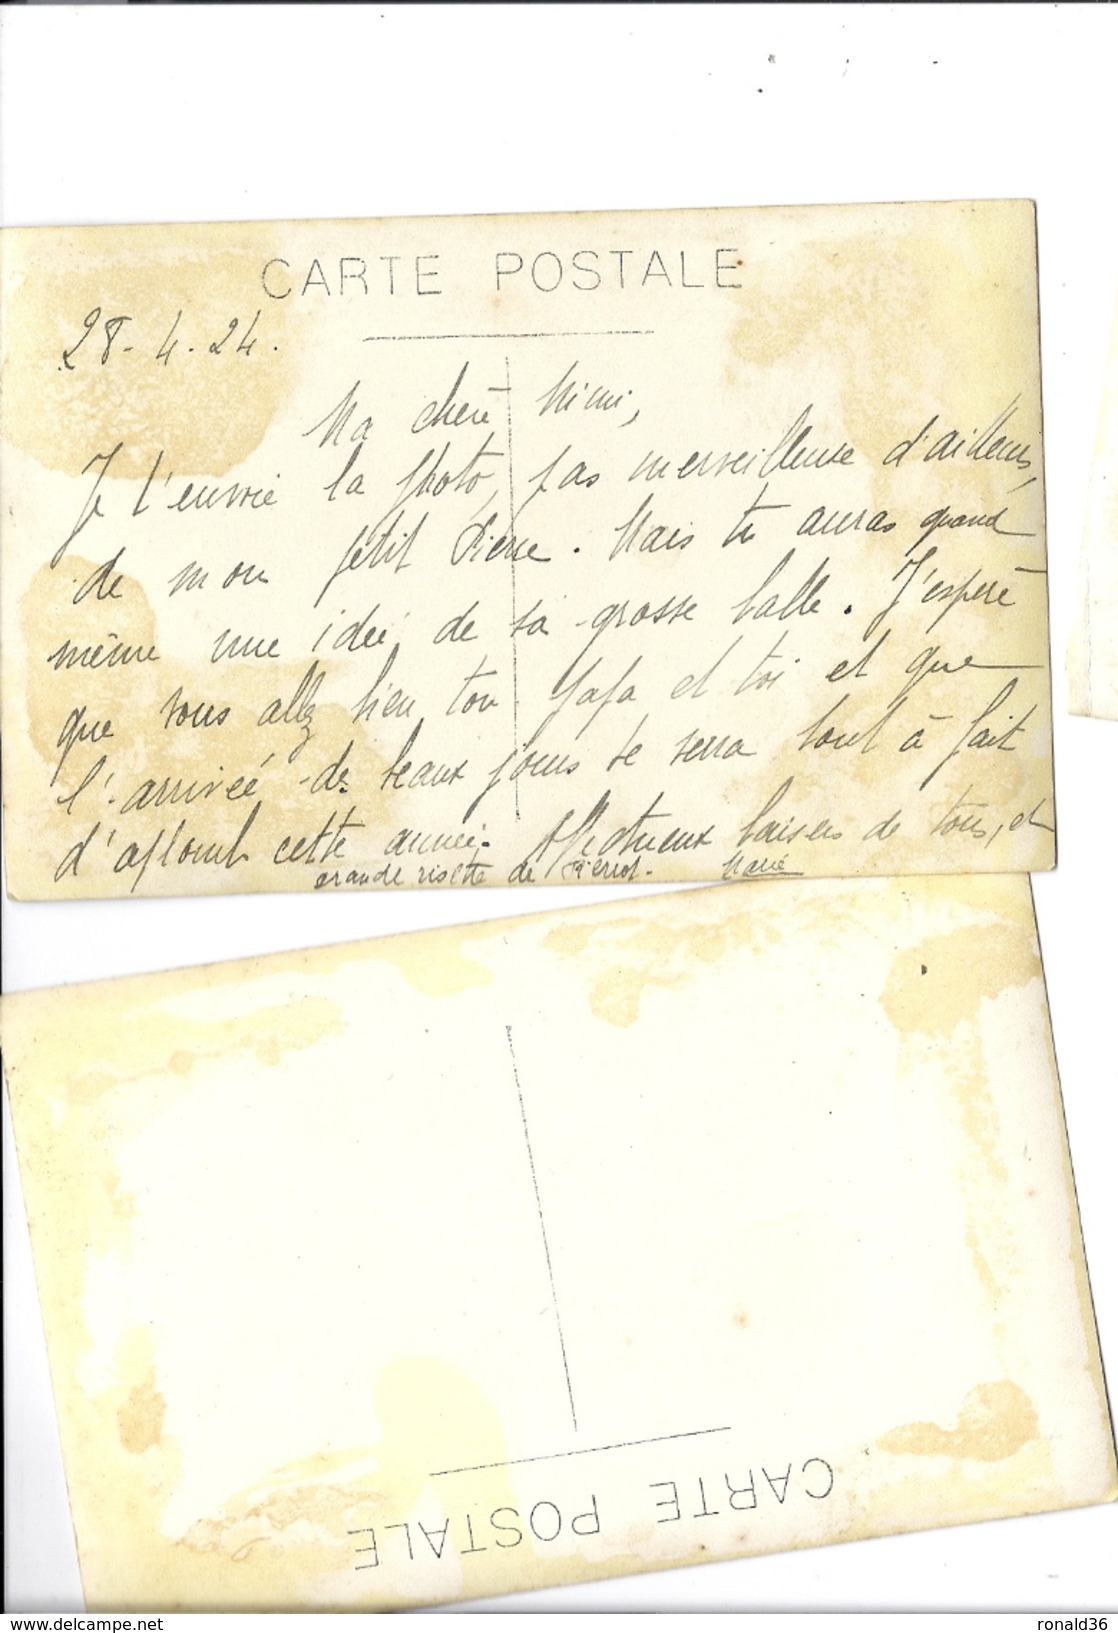 CARTE POSTALE
28-4-24.
Ma chère Mimi,
Je t'envoie la photo, pas merveilleuse d'ailleurs,
de mon petit Pierre. Mais tu auras quand
même une idée de sa grosse balle. J'espère
que vous allez bien ton papa et toi et que
l'arrivée de beaux jours te serra tout à fait
d'aplomb cette année. Affectueux baisers de tous, et
grande risette de Pierrot.
CARTE POSTALE
delcampe.net
ronald36